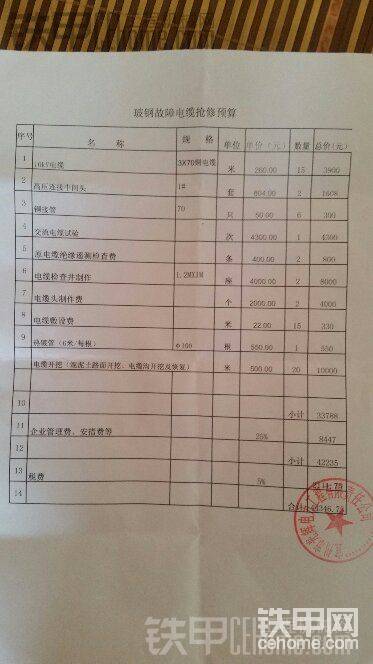 玻钢故障电缆抢修预算
序号 名 称 规 格 单位 单价（元） 数量 总价(元)
1 10kV电缆 3X70铜电缆 米 260.00 15 3900
2 高压连接中间头 1# 套 804.00 2 1608
3 铜接管 70 只 50.00 6 300
4 交流电缆试验 次 4300.00 1 4300
5 原电缆绝缘遥测检查费 条 400.00 2 800
6 电缆检查井制作 1.2MX1M 座 4000.00 2 8000
7 电缆头制作费 个 2000.00 2 4000
8 电缆敷设费 米 22.00 15 330
9 热镀管（6米/每根） Φ100 根 550.00 1 550
电缆开挖（混泥土路面开挖、电缆沟开挖及恢复） 米 500.00 20 10000
10 小计 33788
11 企业管理费、安措费等 25% 8447
12 小计 42235
13 税费 5%
14 合计 346.75
铁甲网
cehome.com
铁甲CEhome.com